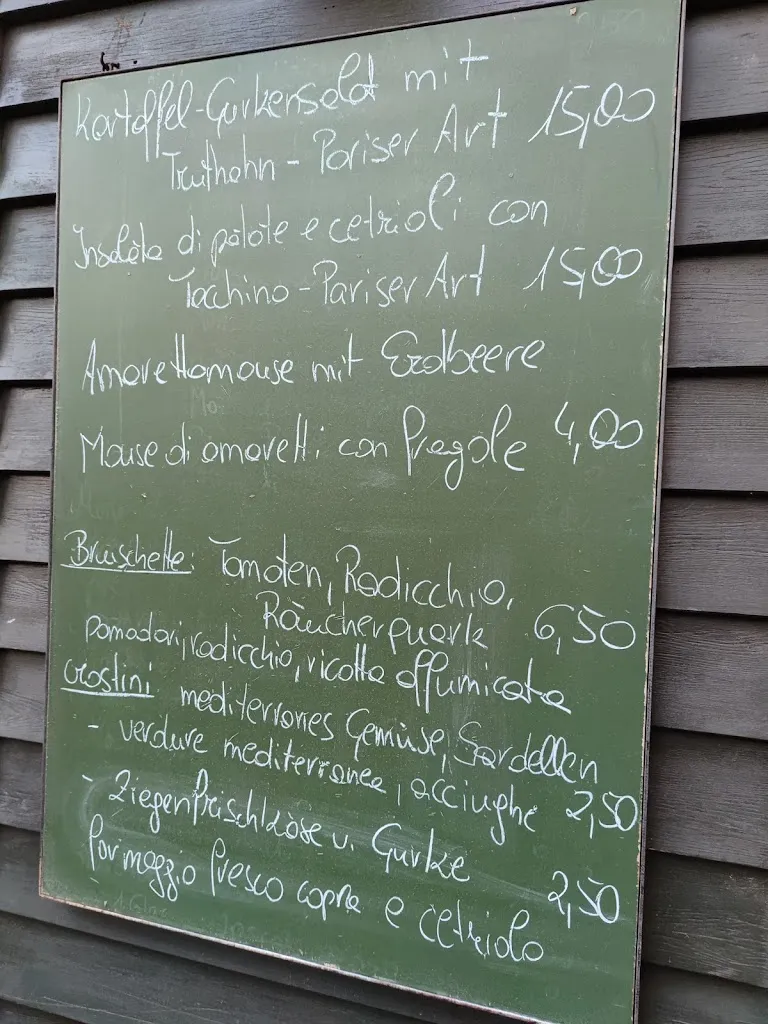 Kartoffel-Gurkensalat mit
Truthahn - Pariser Art 15,00
Insalata di patate e cetrioli con
Tacchino - Pariser Art 15,00
Amarettomouse mit Erdbeere
Mouse di amaretti con fragole 4,00
Bruschette: Tomaten, Radicchio,
Räucherquark 6,50
pomodori, radicchio, ricotta affumicata
Crostini mediterranes Gemüse, Sardellen
- verdure mediterranea, acciughe 2,50
- Ziegenfrischkäse u. Gurke
formaggio fresco capra e cetriolo 2,50